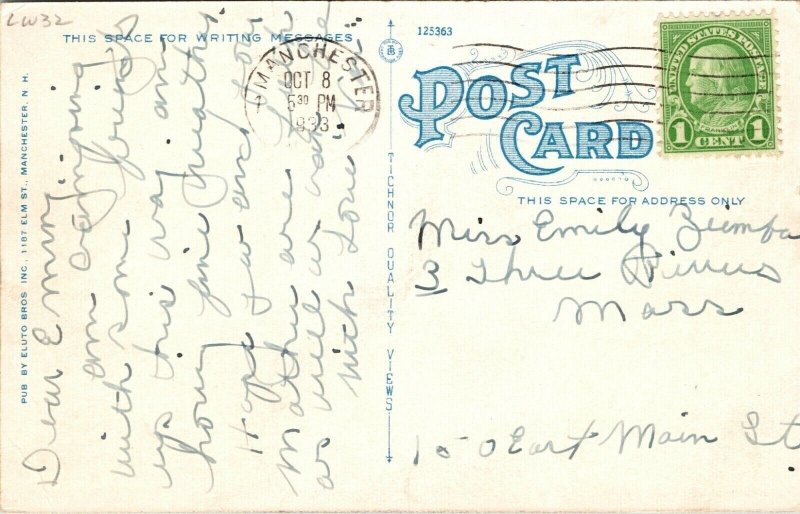 LW32
THIS SPACE FOR WRITING MESSAGES
125363
POST
CARD
UNITED STATES POSTAGE
FRANKLIN
1 CENT 1
MANCHESTER
OCT 8
5 30 PM
1933
THIS SPACE FOR ADDRESS ONLY
Miss Emily Ziemba
3 Three Rivers
Mass
150 East Main St
TICHNOR QUALITY VIEWS
PUB BY ELUTO BROS INC., 1187 ELM ST., MANCHESTER, N. H.
Dear Emmy;
am camping
with some friends
up this way am
having fine weather
Hope you and
Mother are
as well as
with Love